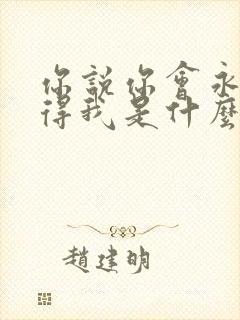 你說你會永
得我是什麼
趙建明